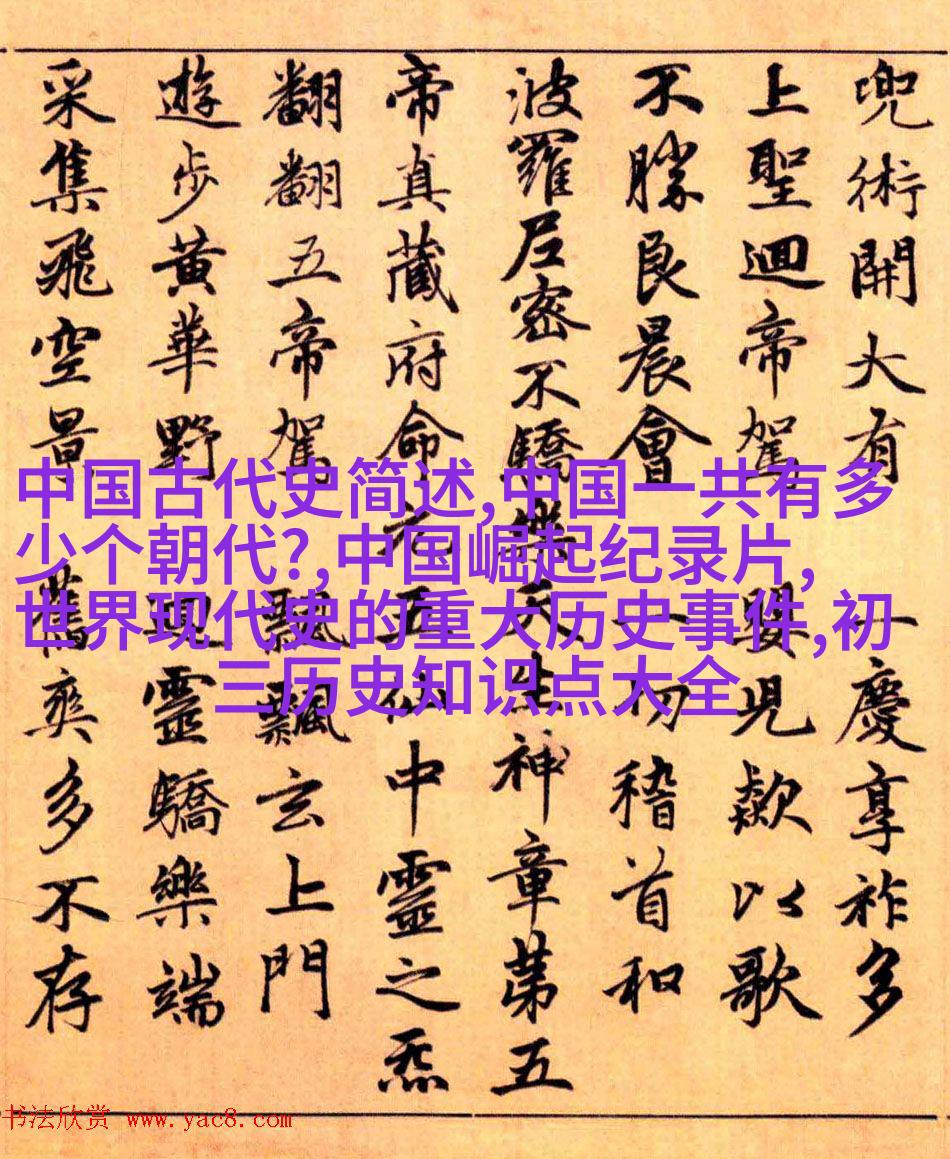 兜術開大有 一慶享祚多
上聖迴帝駕 嬰兒歎以歌
不勝良晨會 一切稽首和
波羅尼密不驕樂天生神章第五
帝真藏府命元五仙中靈之炁
翻翻五帝駕 飄飄玄上門
遊步黃華野 迴靈驕樂端
采集飛空景 舊爽多不存
中国古代史简述,中国一共有多
少个朝代?,中国崛起纪录片,
世界现代史的重大历史事件,初
三历史知识点大全
书法欣赏 www.yac8.com